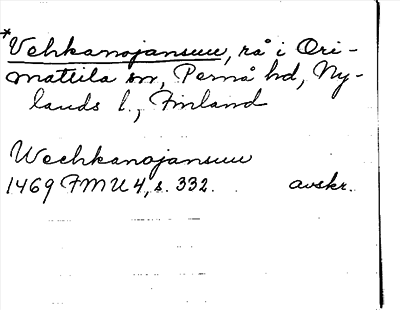 *Vehkanojansuu, rå i Ori-
mattila sn, Pernå hd, Ny-
lands l., Finland
Wechkanojansuu
1469 FMU 4, s. 332. avskr.